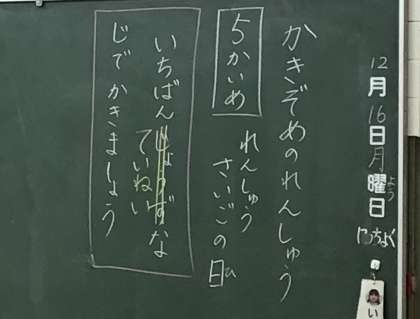 12月16日月曜日
よう
にっちょく
い
かきぞめのれんしゅう
5かいめ
れんしゅう
さいごの日
ひ
いちばんじょうずな
ていねい
じでかきましょう